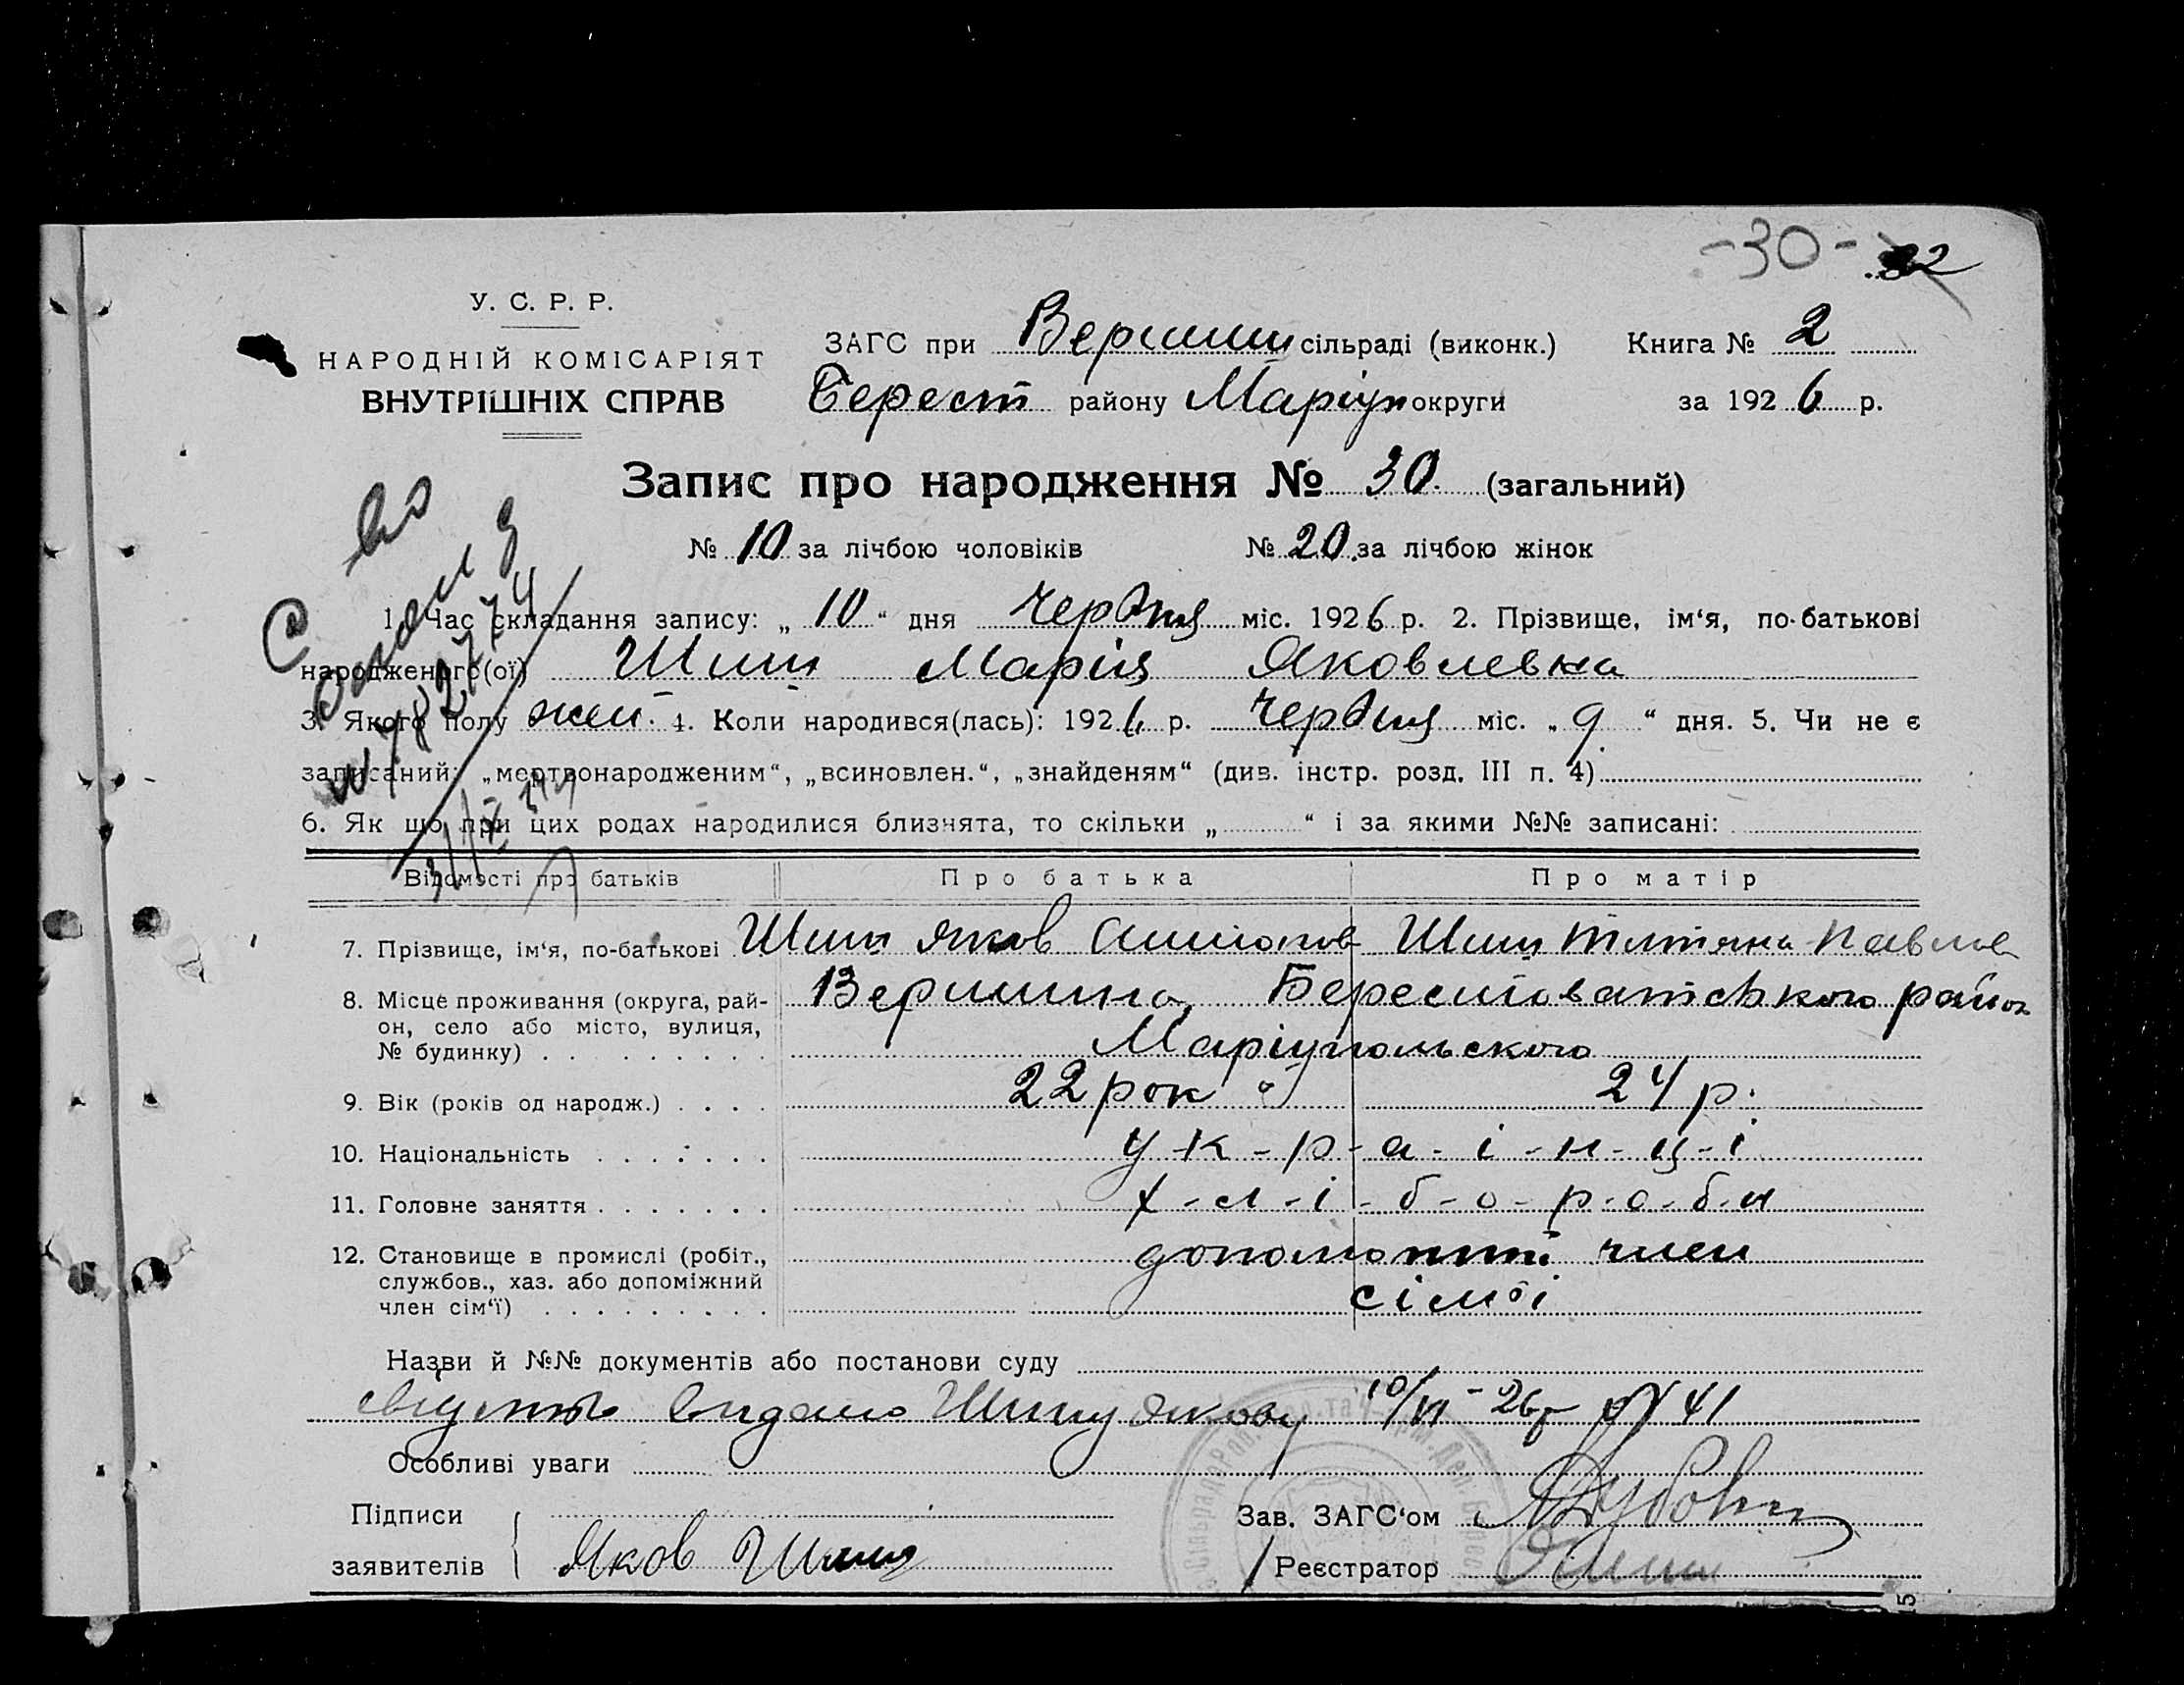 -30- 32
У. С. Р. Р.
НАРОДНІЙ КОМІСАРІЯТ
ВНУТРІШНІХ СПРАВ
ЗАГС при Вершин сільраді (виконк.) Книга № 2
Берест району Маріуп округи за 1926 р.
Запис про народження № 30 (загальний)
№ 10 за лічбою чоловіків № 20 за лічбою жінок
1. Час складання запису: „ 10 “ дня червня міс. 1926 р. 2. Прізвище, ім‘я, по-батькові
народженого(ої) Шиш Марія Яковлевна
3. Якого полу жен. 4. Коли народився(лась): 1926 р. червня міс. „ 9 “ дня. 5. Чи не є
записаний: „мертвонародженим“, „всиновлен.“, „знайденям“ (див. інстр. розд. III п. 4)
6. Як що при цих родах народилися близнята, то скільки „ “ і за якими №№ записані:
Відомості про батьків Про батька Про матір
7. Прізвище, ім‘я, по-батькові Шиш Яков Шиш Татяна Павлов
8. Місце проживання (округа, рай-
он, село або місто, вулиця,
№ будинку) Вершина Берестоватського район
Маріупольского
9. Вік (років од народж.) 22 рок 24 р.
10. Національність у-к-р-а-і-н-ц-і
11. Головне заняття х-л-і-б-о-р-о-б-и
12. Становище в промислі (робіт.,
службов., хаз. або допоміжний
член сім‘ї) член
сімі
Назви й №№ документів або постанови суду
видано Шишу Якову 10/VI-26р № 41
Особливі уваги
Підписи
заявителів Яков Шиш
Зав. ЗАГС‘ом
Реєстратор